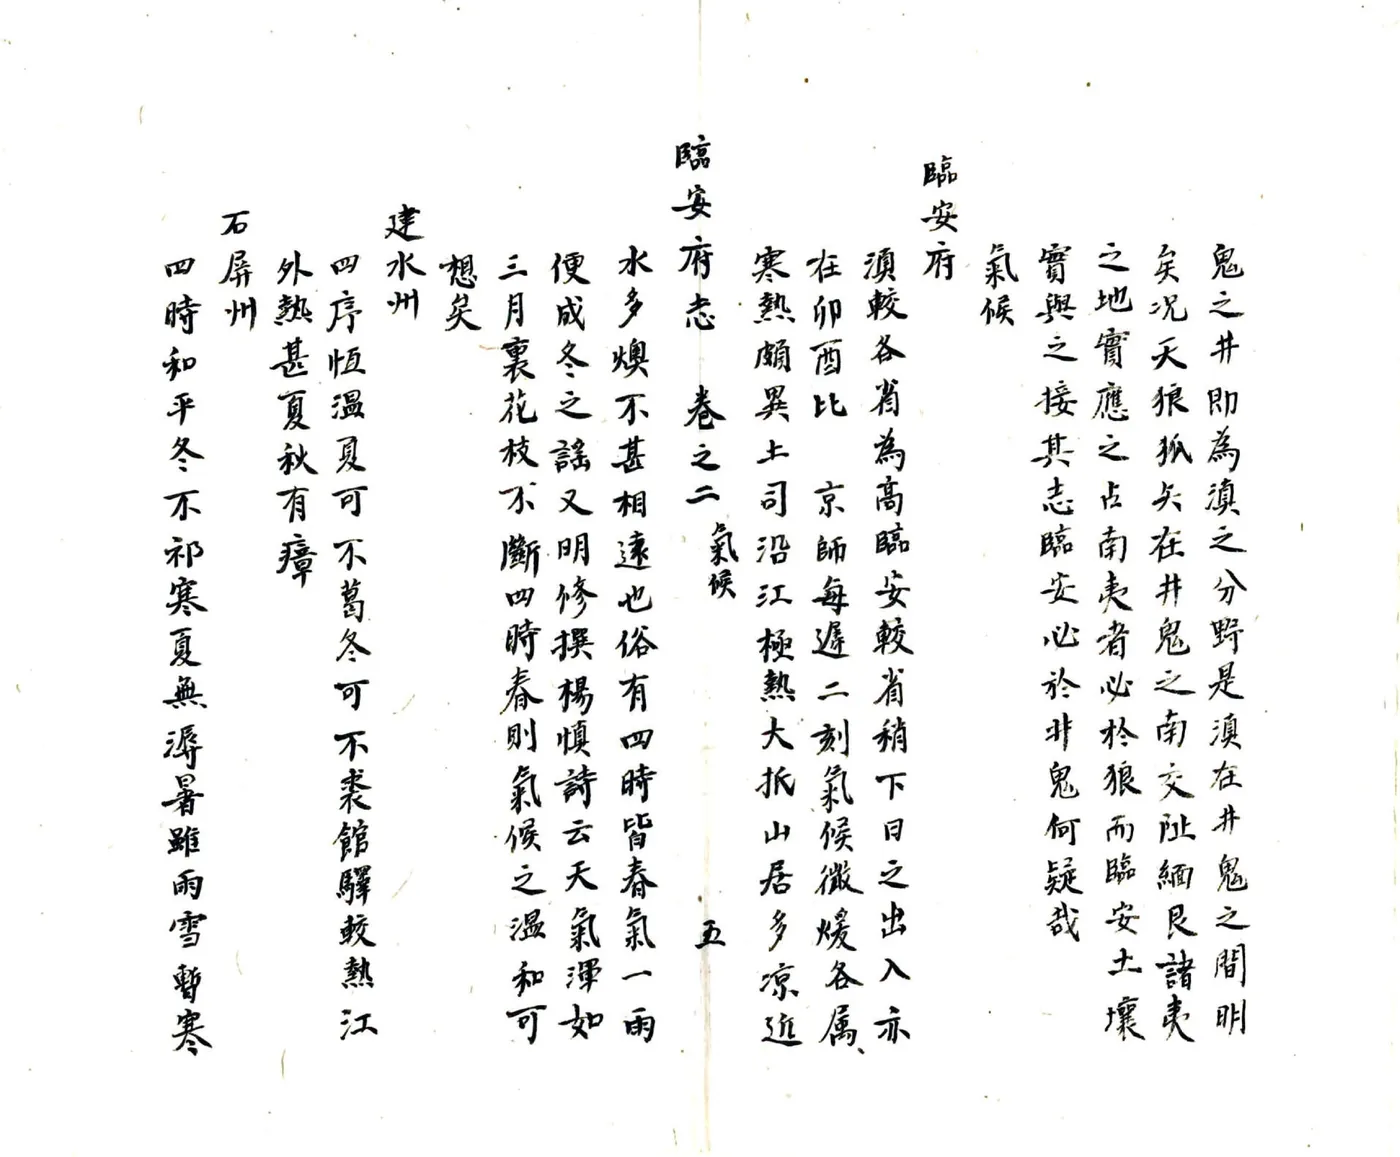 鬼之井即為滇之分野是滇在井鬼之間明
矣况天狼狐矢在井鬼之南交阯緬艮諸夷
之地實應之占南夷者必於狼而臨安土壤
實與之接其志臨安必於井鬼何疑哉
氣候
臨安府
滇較各省為高臨安較省稍下日之出入亦
在卯酉比 京師每遲二刻氣候微煖各属
寒熱頗異土司沿江極熱大抵山居多凉近
臨安府志 卷之二 氣候 五
水多燠不甚相遠也俗有四時皆春氣一雨
便成冬之謠又明修撰楊慎詩云天氣渾如
三月裏花枝不斷四時春則氣候之温和可
想矣
建水州
四序恆温夏可不葛冬可不裘館驛較熱江
外熱甚夏秋有瘴
石屏州
四時和平冬不祁寒夏無溽暑雖雨雪暫寒